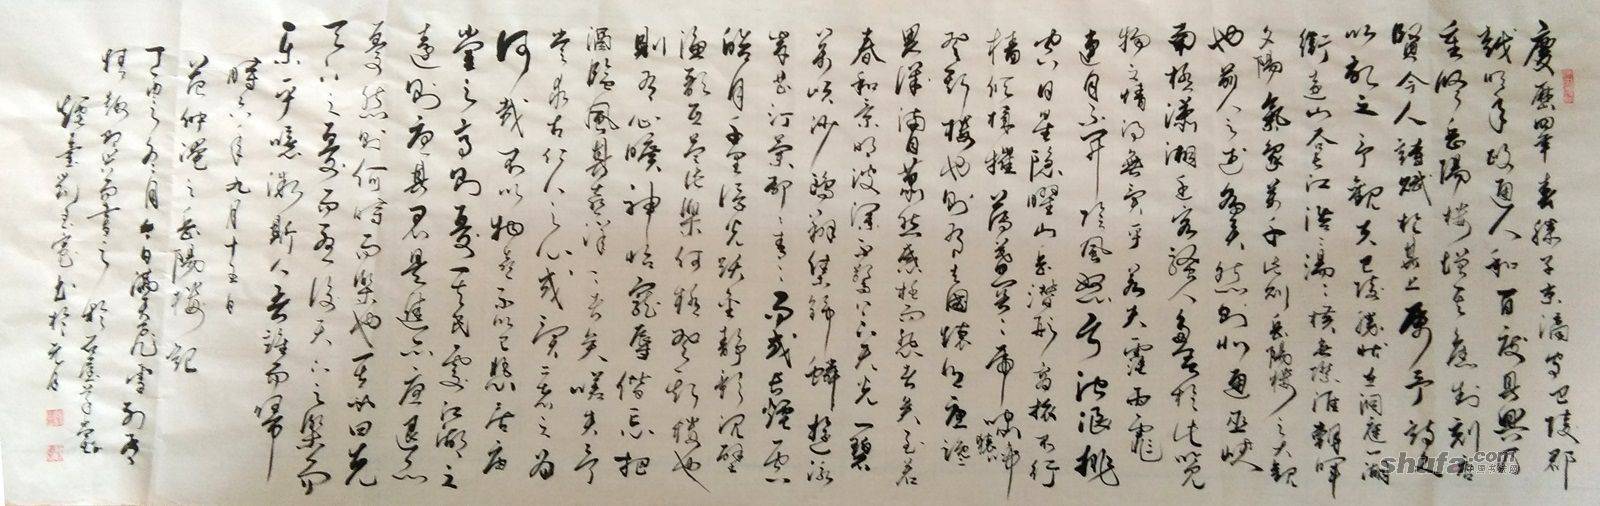 慶曆四年春滕子京謫守巴陵郡
越明年政通人和百廢具興乃
重修岳陽樓增其舊制刻唐
賢今人詩賦於其上屬予作文
以記之予觀夫巴陵勝狀在洞庭一湖
銜遠山吞長江浩浩湯湯橫無際涯朝暉
夕陽氣象萬千此則岳陽樓之大觀
也前人之述備矣然則北通巫峽
南極瀟湘遷客騷人多會於此覽
物之情得無異乎若夫霪雨霏霏
連月不開陰風怒號濁浪排
空日星隱曜山岳潛形商旅不行
檣傾楫摧薄暮冥冥虎嘯猿啼
登斯樓也則有去國懷鄉憂讒
畏譏滿目蕭然感極而悲者矣至若
春和景明波瀾不驚上下天光一碧
萬頃沙鷗翔集錦鱗游泳
岸芷汀蘭郁郁青青而或長煙一空
皓月千里浮光躍金靜影沉璧
漁歌互答此樂何極登斯樓也
則有心曠神怡寵辱偕忘把
酒臨風其喜洋洋者矣嗟夫予
嘗求古仁人之心或異二者之為
何哉不以物喜不以己悲居廟
堂之高則憂其民處江湖之
遠則憂其君是進亦憂退亦
憂然則何時而樂也其必曰先
天下之憂而憂後天下之樂而
樂乎噫微斯人吾誰與歸
時六年九月十五日
范仲淹之岳陽樓記
shufa.com
中国书法网